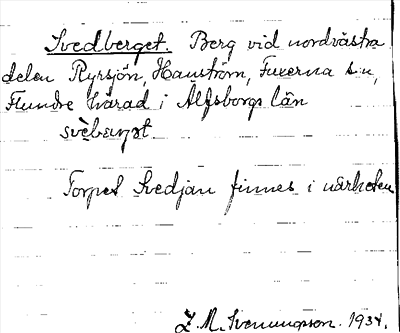 Svedberget. Berg vid nordvästra
delen Ryrsjön, Hanström, Fuxerna sn,
Flundre härad i Älfsborgs län
svèbærjət
Torpet Svedjan finnes i närheten
Z. M. Svenungsson. 1934.